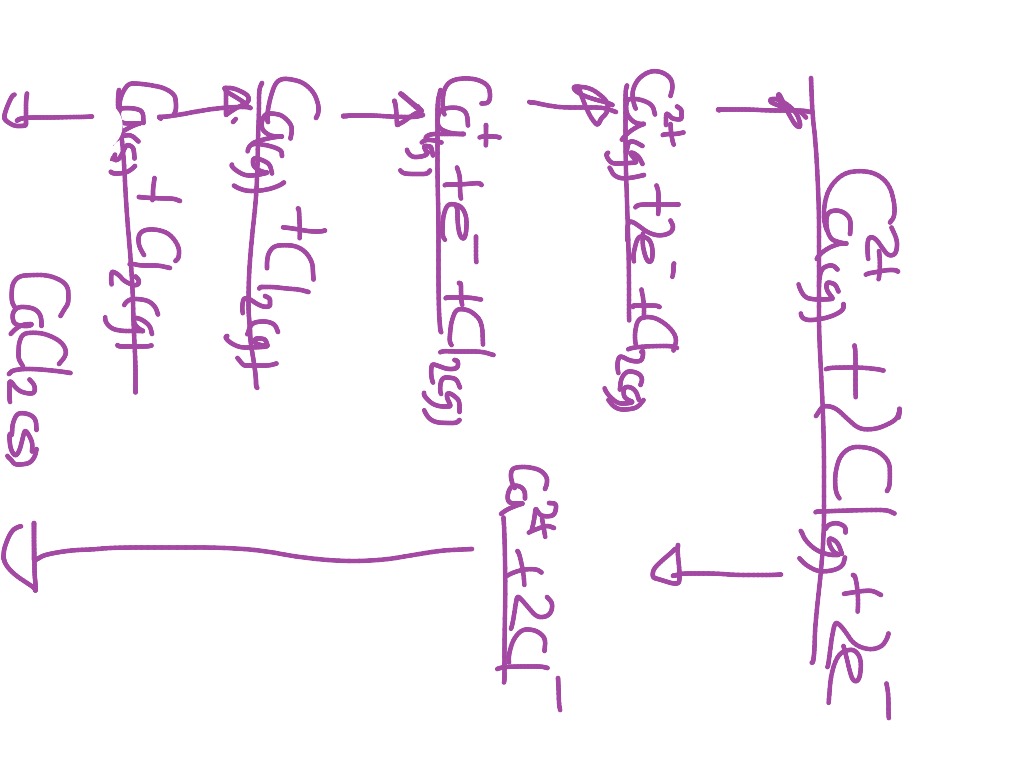 Ca²⁺(g) + 2Cl(g) + 2e⁻
Ca²⁺(g) + 2e⁻ + Cl₂(g)
Ca²⁺ + 2Cl⁻
Ca⁺(g) + e⁻ + Cl₂(g)
Ca(g) + Cl₂(g)
Ca(s) + Cl₂(g)
CaCl₂(s)